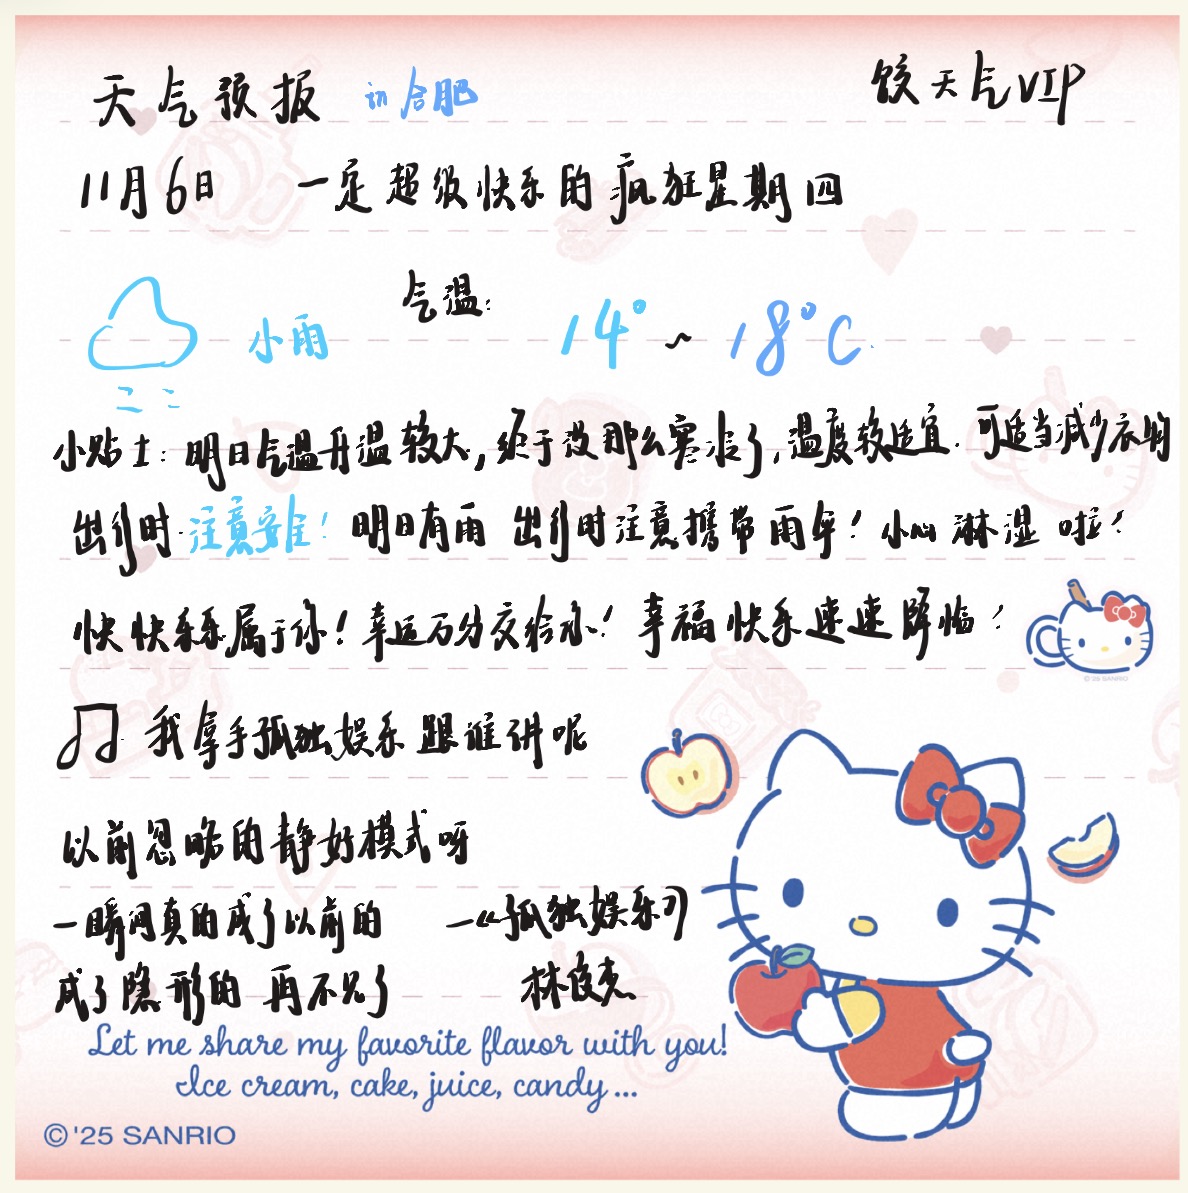 天气预报 in 合肥 饺天气VIP
11月6日 一定超级快乐的疯狂星期四
小雨 气温: 14° ~ 18°C
小贴士: 明日气温升温较大, 终于没那么寒冷了, 温度较适宜. 可适当减少衣物
出行时 注意安全! 明日有雨 出行时注意携带雨伞! 小心淋湿啦!
快快乐乐属于你! 幸运万分交给你! 幸福快乐速速降临!
我拿手孤独娱乐 跟谁讲呢
© '25 SANRIO
以前忽略的静好模式呀
一瞬间真的成了以前的 —《孤独娱乐》
成了隐形的 再不见了 林俊杰
Let me share my favorite flavor with you!
Ice cream, cake, juice, candy ...
© '25 SANRIO